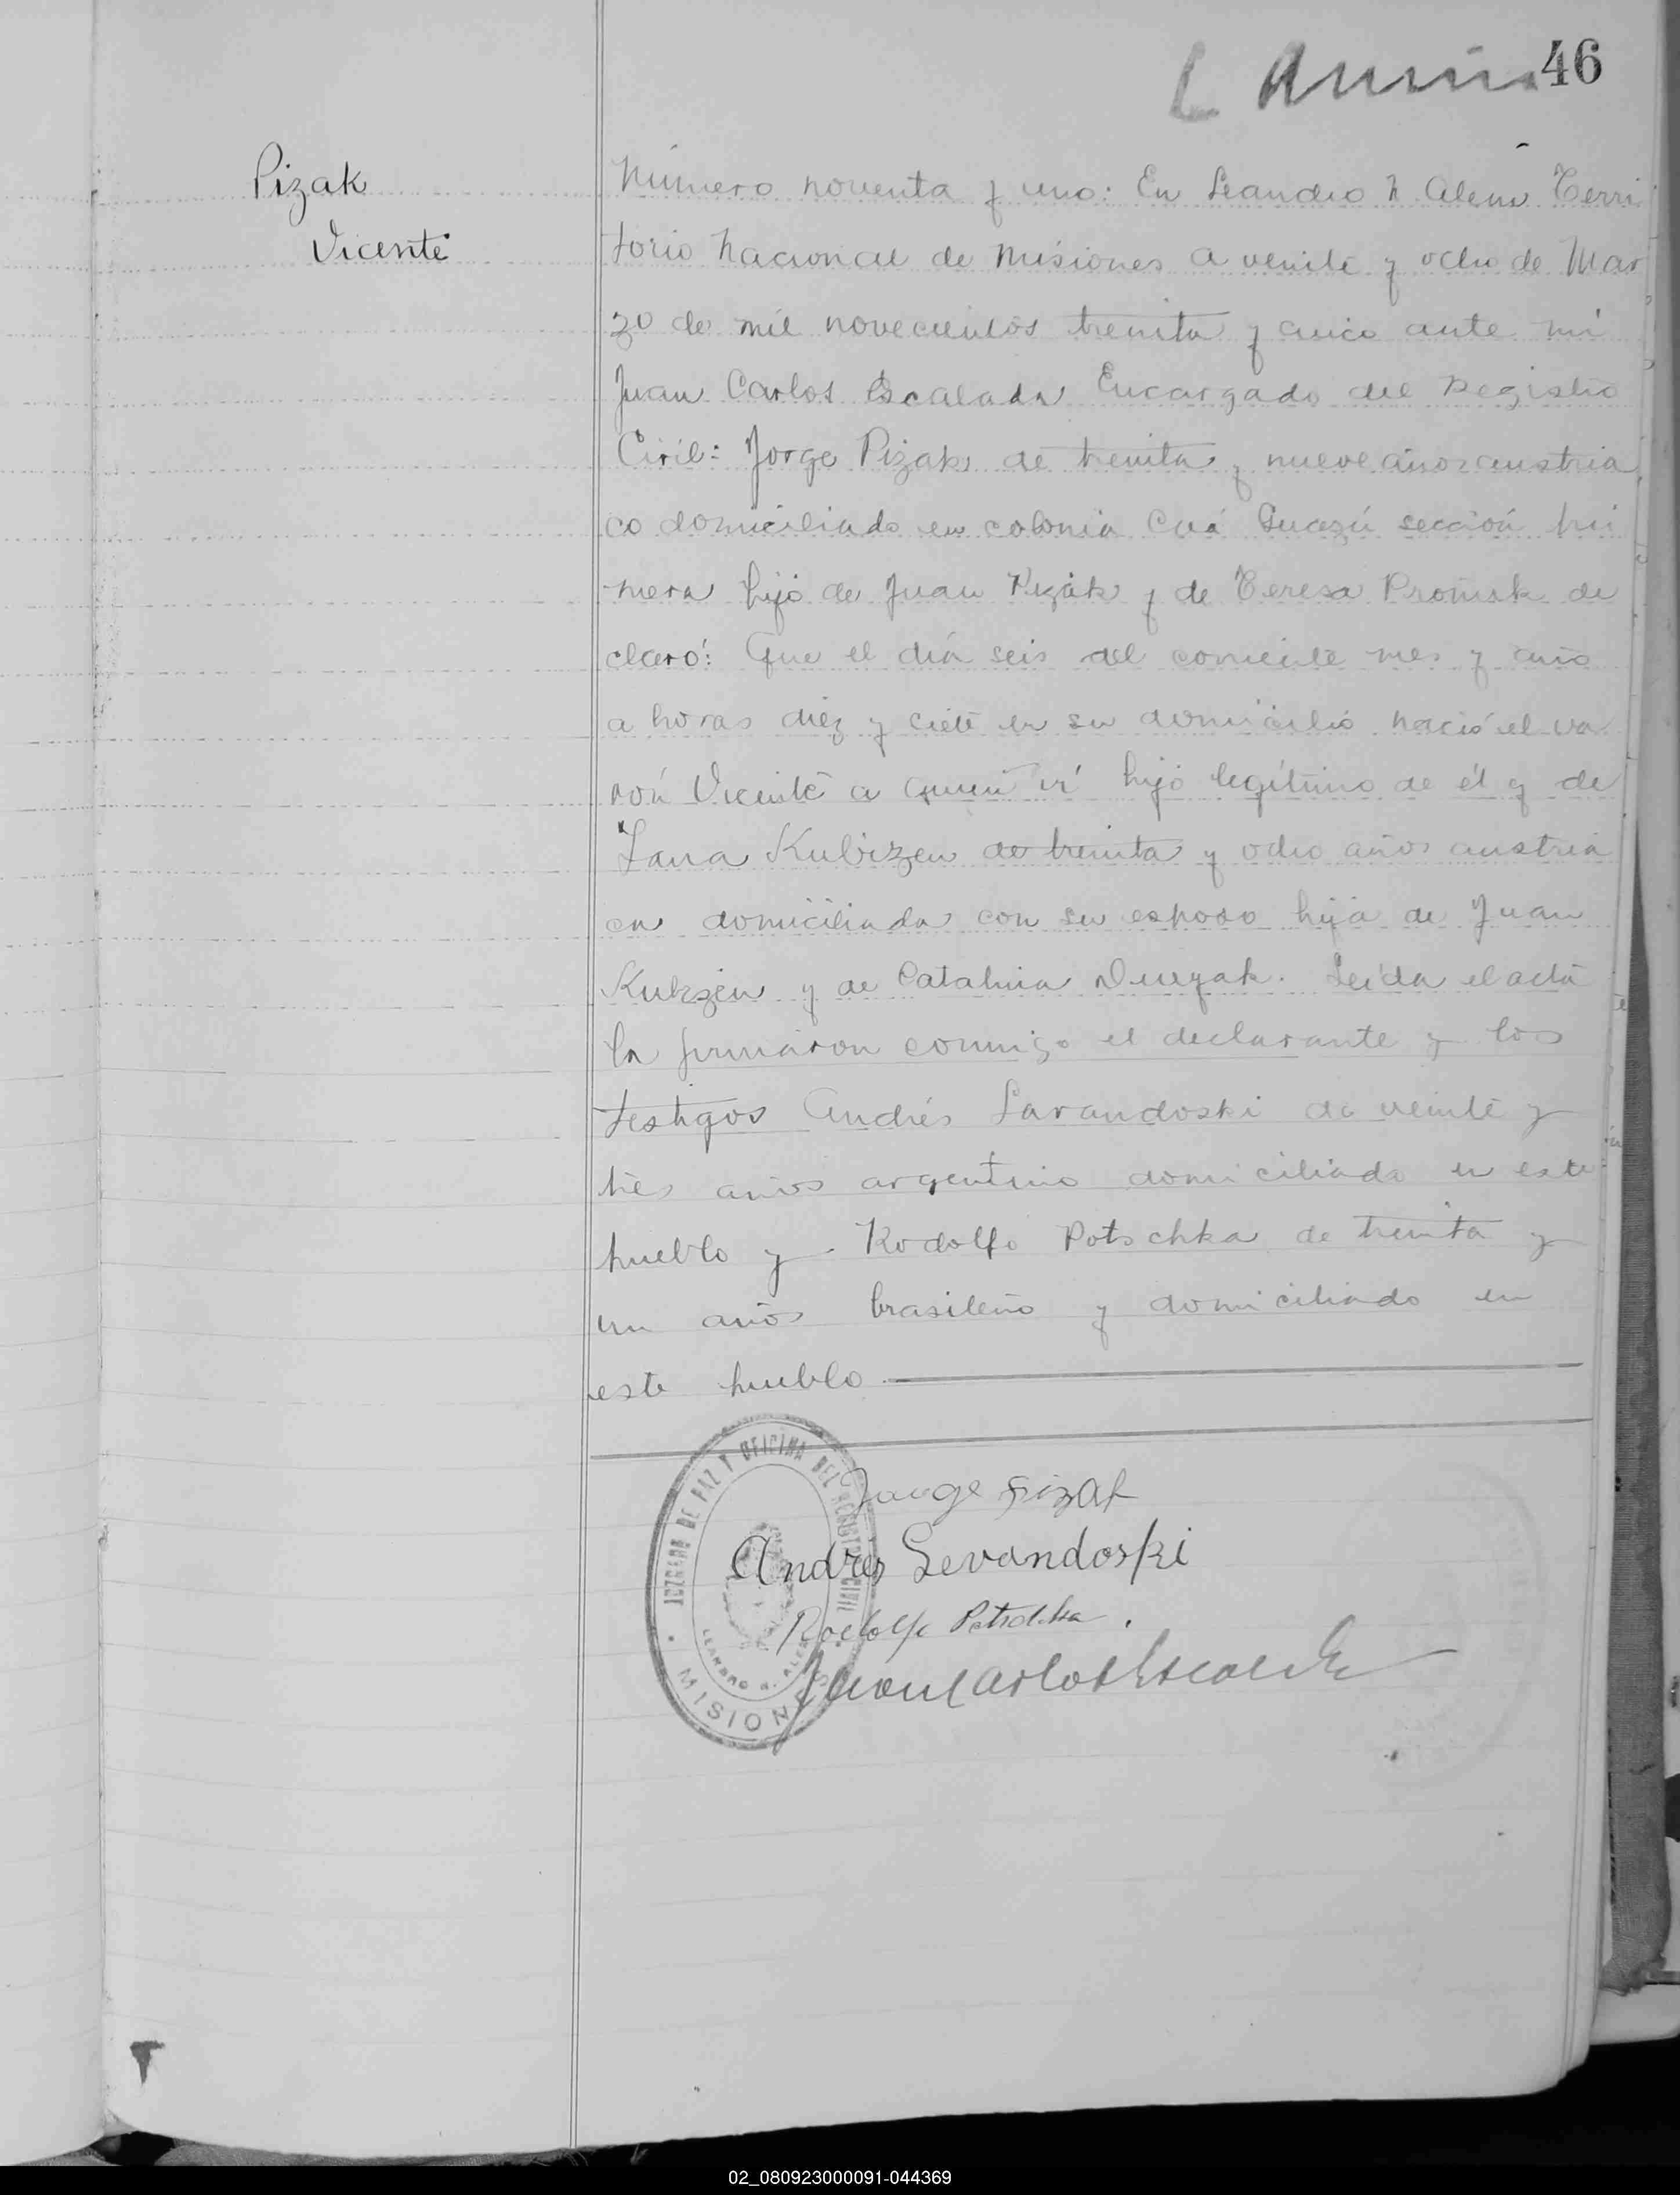 46
Pizak
Vicente
Número noventa y uno: En Leandro N Alem Terri
torio Nacional de Misiones a veinte y ocho de Mar
zo de mil novecientos treinta y cinco ante mí
Juan Carlos Escalada Encargado del Registro
Civil: Jorge Pizak de treinta y nueve años austria
co domiciliado en colonia Caá Guazú sección pri
mera hijo de Juan Pizak y de Teresa de
claró: Que el día seis del corriente mes y año
a horas diez y ciete en su domicilio nació el va
rón Vicente a quien ví hijo legítimo de él y de
Kubizen de treinta y ocho años austria
ca domiciliada con su esposo hija de Juan
y de Catalina Leída el acta
la firmaron conmigo el declarante y los
testigos Andrés Lavandoski de veinte y
tres años argentino domiciliado en este
pueblo y Rodolfo Potschka de treinta y
un años brasileño y domiciliado en
este pueblo
Jorge Pizak
Andrés Levandoski
Rodolfo Potschka
Juan Carlos Escalada
JUZGADO DE PAZ Y OFICINA DEL REGISTRO CIVIL
LEANDRO N. ALEM
MISIONES
02_080923000091-044369